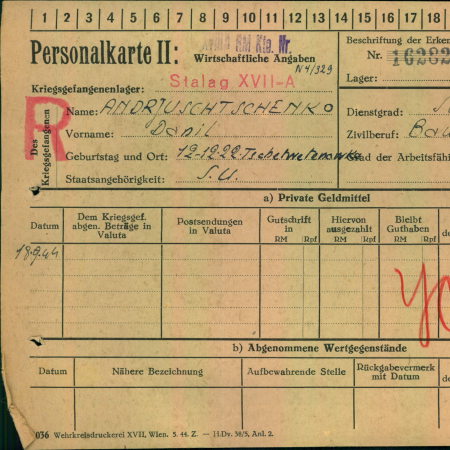 1 2 3 4 5 6 7 8 9 10 11 12 13 14 15 16 17 18
Personalkarte II:
RM Kto. Nr.
Wirtschaftliche Angaben
N4/329
Beschriftung der Erken
Nr. 16282
Lager:
Kriegsgefangenenlager: Stalag XVII-A
R
Des Kriegsgefangenen
Name: ANDRIUSCHTSCHENKO
Dienstgrad:
Vorname: Danil
Zivilberuf: Bau
Geburtstag und Ort: 12.12.22
Grad der Arbeitsfäh
Staatsangehörigkeit: S.U.
a) Private Geldmittel
Datum
Dem Kriegsgef. abgen. Beträge in Valuta
Postsendungen in Valuta
Gutschrift in
RM Rpf
Hiervon ausgezahlt
RM Rpf
Bleibt Guthaben
RM Rpf
de
18.9.44
b) Abgenommene Wertgegenstände
Datum
Nähere Bezeichnung
Aufbewahrende Stelle
Rückgabevermerk mit Datum
de
036 Wehrkreisdruckerei XVII, Wien. 5. 44. Z. — H.Dv. 38/5, Anl. 2.